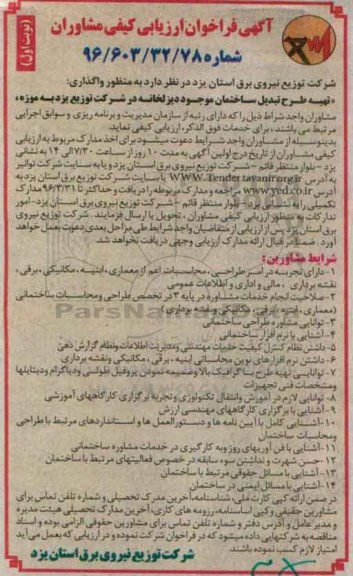 آگهی فراخوان ارزیابی کیفی مشاوران
شماره ۹۶/۶۰۳/۳۲/۷۸
(نوبت اول)
شرکت توزیع نیروی برق استان یزد در نظر دارد به منظور واگذاری:
«تهیه طرح تبدیل ساختمان موجود دیزلخانه در شرکت توزیع یزد به موزه»
مشاوران واجد شرایط ذیل را که دارای رتبه از سازمان مدیریت و برنامه ریزی و سوابق اجرایی
مرتبط می باشند، برای خدمات فوق الذکر، ارزیابی کیفی نماید.
بدینوسیله از مشاوران واجد شرایط دعوت میشود برای اخذ مدارک مربوط به ارزیابی
کیفی مشاوران از تاریخ درج اولین آگهی به مدت ۱۰ روز از ساعت ۷/۳۰ الی ۱۴ به نشانی
یزد - بلوار منتظر قائم - شرکت توزیع نیروی برق استان یزد و یا به سایت شرکت توانیر
به آدرس WWW.Tender.tavanir.org.ir یا سایت شرکت توزیع برق استان یزد به
آدرس www.yed.co.ir مراجعه و مدارک مربوطه را دریافت و حداکثر تا ۹۶/۳/۳۱ مدارک
تکمیلی را به نشانی یزد- بلوار منتظر قائم - شرکت توزیع نیروی برق استان یزد- امور
تدارکات به منظور ارزیابی کیفی مشاوران، تحویل یا ارسال فرمایند. شرکت توزیع نیروی
برق استان یزد پس از ارزیابی از متقاضیان واجد شرایط طی مراحل بعدی دعوت بعمل خواهد
آورد. ضمنا در قبال ارائه مدارک ارزیابی وجهی دریافت نخواهد شد.
شرایط مشاورین:
۱- دارای تجربه در امر طراحی، محاسبات اعم از معماری، ابنیه، مکانیکی، برقی،
نقشه برداری، مالی و اداری و اطلاعات عمومی
۲- صلاحیت انجام خدمات مشاوره در پایه ۳ در تخصص طراحی ومحاسبات ساختمانی
(معماری، ابنیه، برقی، مکانیکی ونقشه برداری)
۳- توانایی مشاوره طراحی ساختمانی
۴- آشنایی با نرم افزار ساختمانی
۵- داشتن نظام کنترل کیفیت خدمات مهندسی ومدیریت اطلاعات ونظام گزارش دهی
۶- داشتن نرم افزارهای نوین محاسباتی ابنیه، برقی، مکانیکی ونقشه برداری
۷- توانایی تهیه طرح با گرافیک بالا وضمیمه نمودن پروفیل طولی ودیاگرام ودیتایلها
ومشخصات فنی تجهیزات
۸- توانایی لازم در آموزش وانتقال تکنولوژی وتجربه برگزاری کارگاههای آموزشی
۹- آشنایی با برگزاری کارگاههای مهندسی ارزش
۱۰- آشنایی کامل با آیین نامه ها و دستورالعمل ها و استانداردهای مرتبط با طراحی
ومحاسبات ساختمان
۱۱- آشنایی با فن آوریهای روز وبه کارگیری در خدمات مشاوره ساختمانی
۱۲- حسن شهرت و نداشتن سوء سابقه در خصوص فعالیتهای مرتبط با ساختمان
۱۳- آشنایی با مسائل حقوقی مرتبط با ساختمان
۱۴- آشنایی با مسائل ایمنی در ساختمان
در ضمن ارائه کپی کارت ملی، شناسنامه، آخرین مدرک تحصیلی و شماره تلفن تماس برای
مشاورین حقیقی و کپی اساسنامه، رزومه های کاری، آخرین مدارک تحصیلی هیئت مدیره
و مدیر عامل و آدرس دفتر و شماره تلفن تماس برای مشاورین حقوقی الزامی بوده و اسناد
مناقصه به شرکتهایی داده میشود که در فراخوان شرکت نموده و در ارزیابی که بعمل می آید
امتیاز لازم کسب نموده باشند.
شرکت توزیع نیروی برق استان یزد